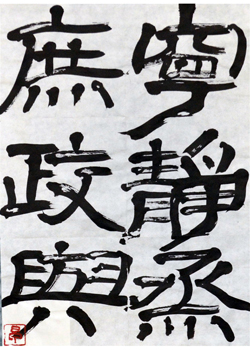 寧靜烝
庶政與